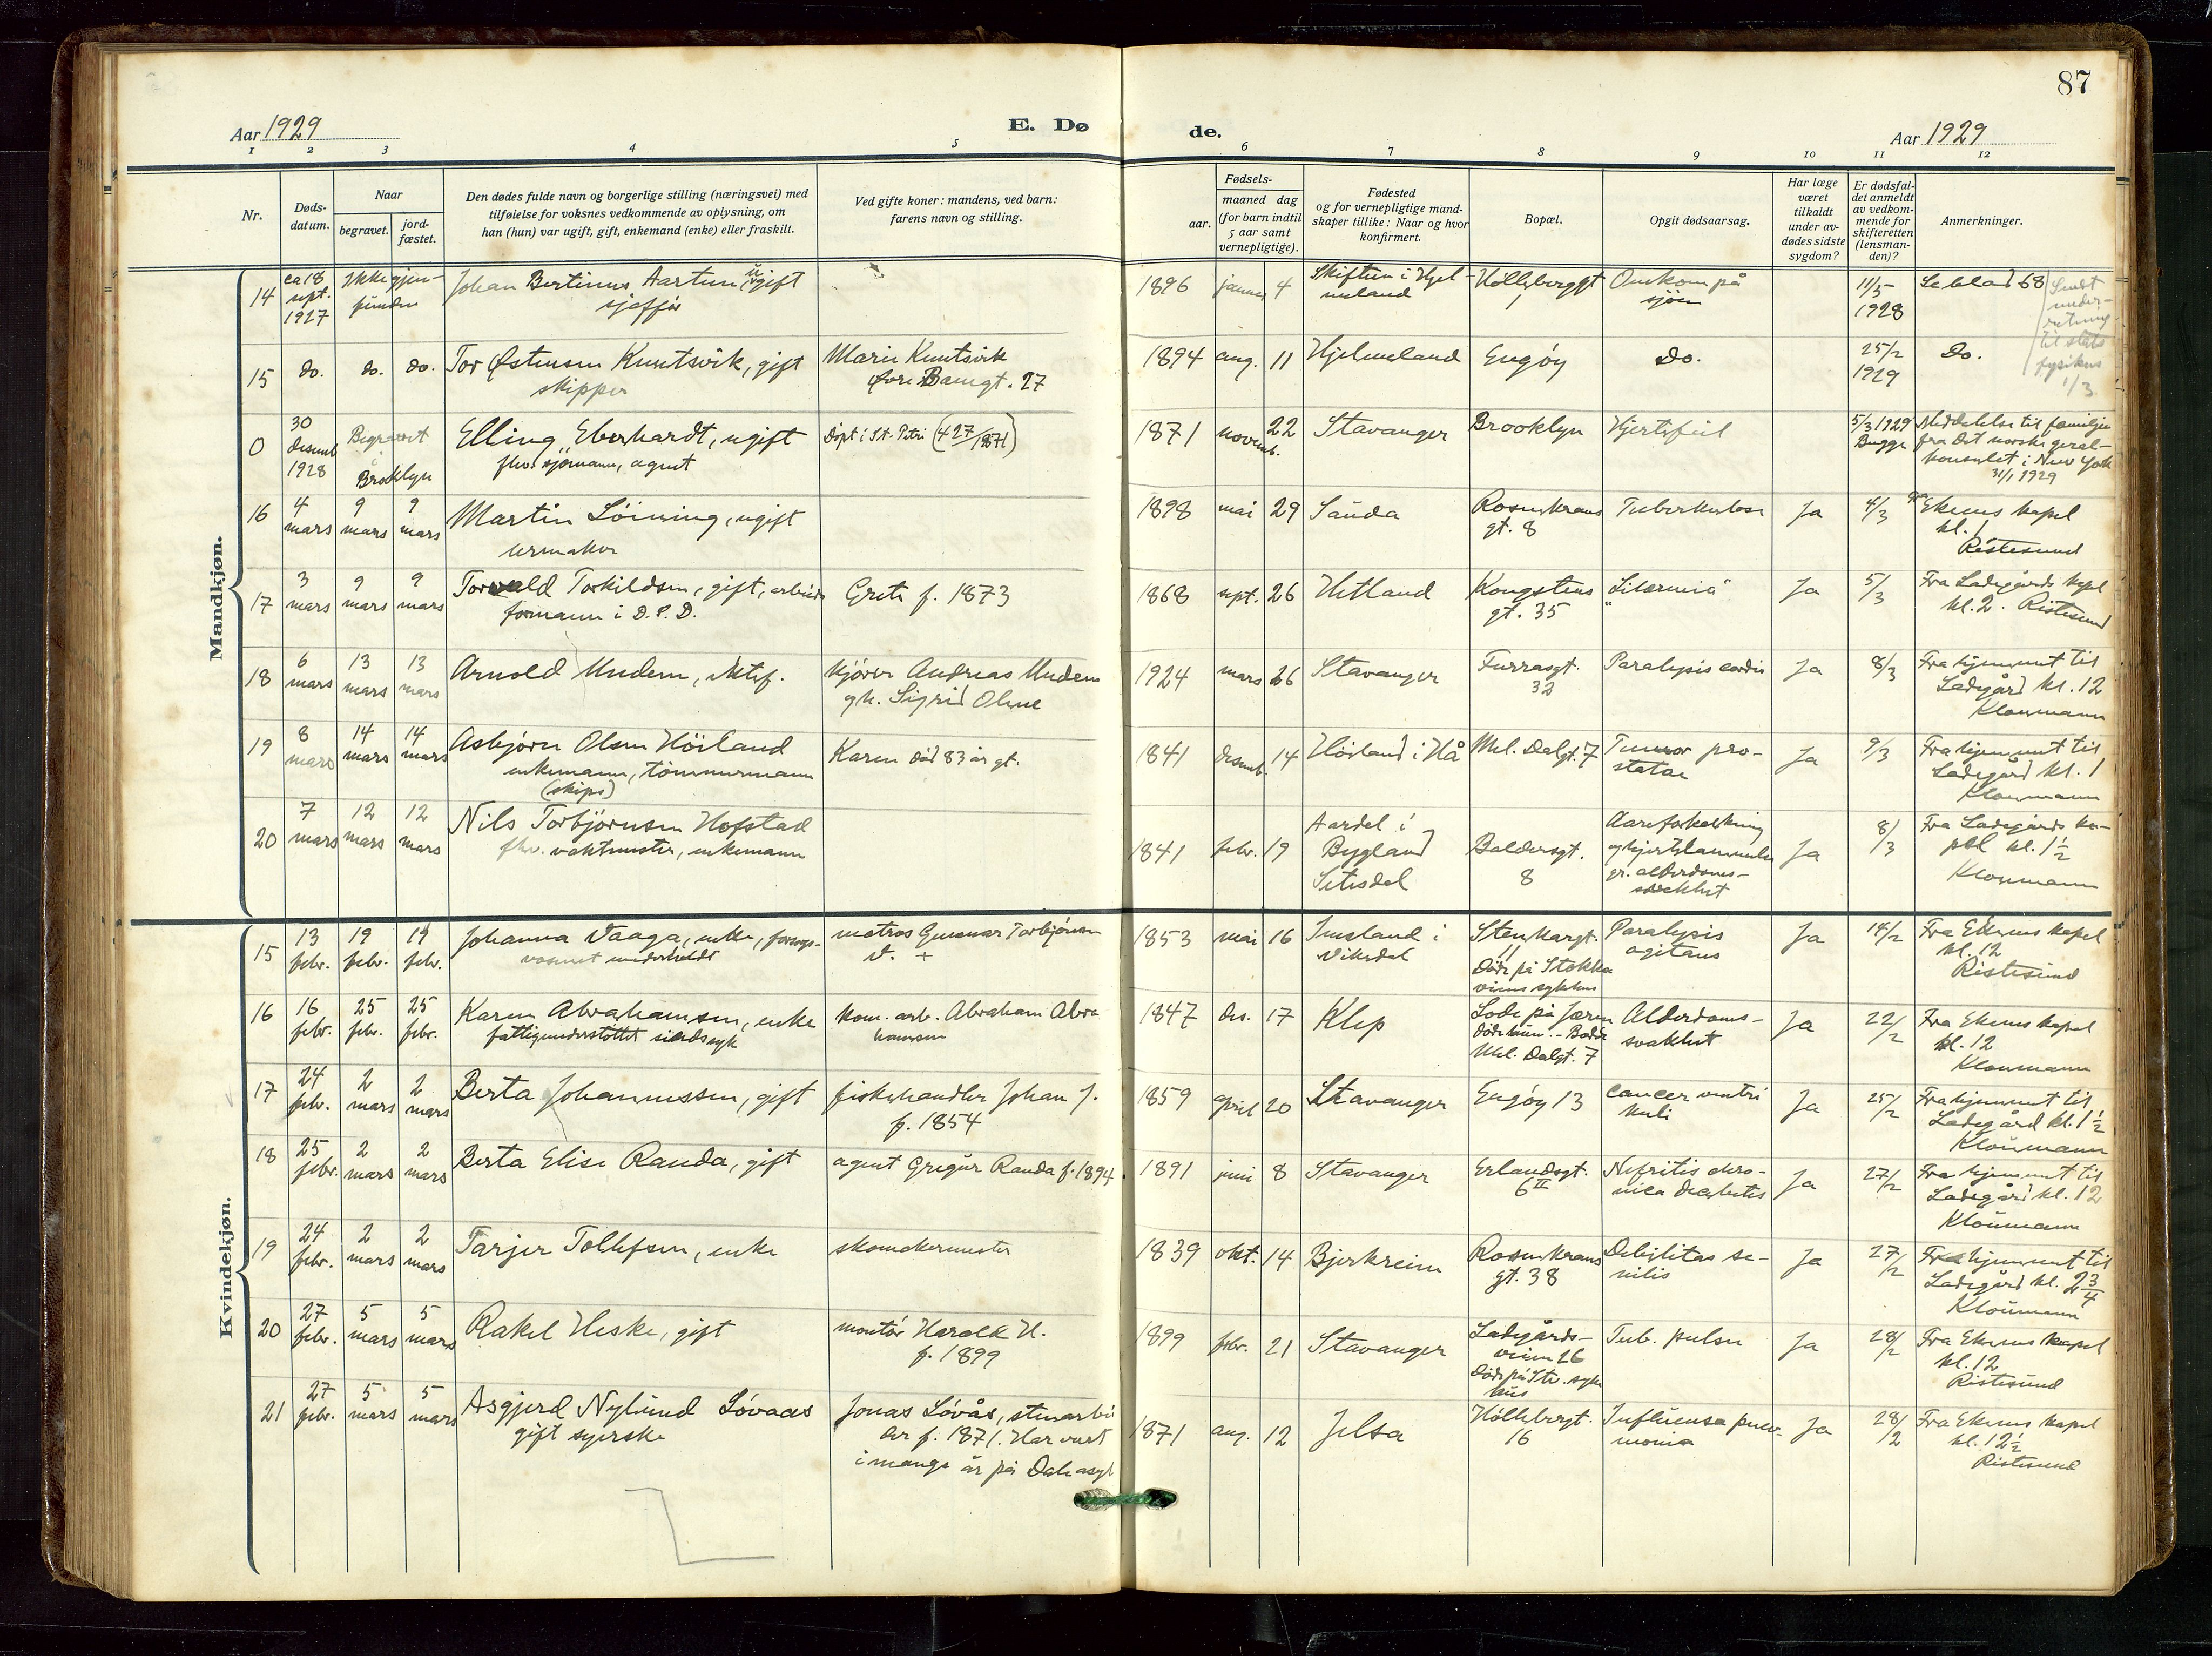 87
Aar 1929
E. Dø
de.
Aar 1929
1 2 3 4 5 6 7 8 9 10 11 12
Nr.
Døds-
datum.
Naar
begravet.
jord-
fæstet.
Den dødes fulde navn og borgerlige stilling (næringsvei) med
tilføielse for voksnes vedkommende av oplysning, om
han (hun) var ugift, gift, enkemand (enke) eller fraskilt.
Ved gifte koner: mandens, ved barn:
farens navn og stilling.
Fødsels-
aar.
maaned dag
(for barn indtil
5 aar samt
vernepligtige).
Fødested
og for vernepligtige mand-
skaper tillike: Naar og hvor
konfirmert.
Bopæl.
Opgit dødsaarsag.
Har læge
været
tilkaldt
under av-
dødes sidste
sygdom?
Er dødsfal-
det anmeldt
av vedkom-
mende for
skifteretten
(lensman-
den)?
Anmerkninger.
Mandkjøn.
14
ca 18
sept.
1927
Ikke gjen-
funden
Johan Bertinus Aartun, ugift
sjøffør
1896 januar 4
Skiftun i Hjel-
meland
Holbergsgt
1
Omkom på
sjøen
11/5
1928
Se blad 68
Sendt
under-
retning
til stats
fysikus
1/3
15 do. do. do.
Tor Østensen Kuntsvik, gift
skipper
Marie Kuntsvik
øvre Banegt. 27
1894 aug. 11
Hjelmeland
Engøy
Do.
25/2
1929
Do.
0
30
desemb
1928
Begravet
i
Brooklyn
Elling Eberhardt, ugift
fhv. sjømann, agent
Døpt i St. Petri (427/1871)
1871 novemb. 22
Stavanger
Brooklyn
Hjertefeil
5/3 1929
Bugge
Meddelelse til familjen
fra det norske general-
konsulat i New York
31/1 1929
16
4 mars
9 mars
9 mars
Martin Löining, ugift
urmaker
1898 mai 29
Sauda
Rosenkrans
gt. 8
Tuberkulose
Ja
4/3
Fra Ekenes kapel
kl. 1
Ristesund
17
3 mars
9 mars
9 mars
Torvald Torkildsen, gift, arbeids
formann i D. S. D.
Grete f. 1873
1868 sept. 26
Hetland
Kongstens
gt. 35
"Silærmia"
Ja
5/3
Fra Ladegårds kapel
kl. 2. Ristesund
18
6 mars
13 mars
13 mars
Arnold Undem, ektef.
kjører Andreas Undem
og h. Sigrid Olene
1924 mars 26
Stavanger
Furrasgt.
32
Paralysis cordis
Ja
8/3
Fra hjemmet til
Ladegård kl. 12
Kloumann
19
8 mars
14 mars
14 mars
Asbjørn Olsen Höiland
enkemann, tömmermann
(skips)
Karen död 83 år gt.
1841 desemb. 14
Höiland i Hå
Mel. Dalgt. 7
Tumor pro-
statae
Ja
9/3
Fra hjemmet til
Ladegård kl. 1
Kloumann
20
7 mars
12 mars
12 mars
Nils Torbjørnsen Hofstad
fhv. vaktmester, enkemann
1841 febr. 19
Aardal i
Bygland
Setesdal
Baldersgt.
8
Aareforkalkning
og hjertelammelse
gr. alderdoms-
svakhet
Ja
8/3
Fra Ladegårds ka-
pel kl. 1½
Kloumann
Kvindekjøn.
15
13 febr.
19 febr.
19 febr.
Johanna Vaaga, enke, forsorgs-
vesenet underholdt
matros Gunnar Torbjönsen
V. +
1853 mai 16
Imsland i
Vikedal
Stenkargt.
11
Döde på Stokka
veiens sykehus
Paralysis
agitans
Ja
14/2
Fra Ekenes kapel
kl. 12
Ristesund
16
16 febr.
25 febr.
25 febr.
Karen Abrahamsen, enke
fattigunderstöttet sindssyk
kom. arb. Abraham Abra
hamsen
1847 des. 17
Klep
Lode på Jæren
Mel. Dalgt. 7
Alderdoms-
svakhet
Ja
22/2
Fra Ekenes kapel
kl. 12
Kloumann
17
24 febr.
2 mars
2 mars
Berta Johannessen, gift
fiskehandler Johan J.
f. 1854
1859 april 20
Stavanger
Engöy 13
Cancer ventri
kuli
Ja
25/2
Fra hjemmet til
Ladegård kl. 1½
Kloumann
18
25 febr.
2 mars
2 mars
Berta Elise Randa, gift
agent Gregur Randa f. 1894
1891 juni 8
Stavanger
Erlandsgt.
6 II
Nefritis chro-
nica diabetes
Ja
27/2
Fra hjemmet til
Ladegård kl. 12
Kloumann
19
24 febr.
2 mars
2 mars
Tarjer Tollefsen, enke
skomakermester
1839 okt. 14
Bjerkreim
Rosenkrans
gt. 38
Debilitas se-
nilis
Ja
27/2
Fra hjemmet til
Ladegård kl. 2¾
Kloumann
20
27 febr.
5 mars
5 mars
Rakel Heske, gift
montör Harald H.
f. 1899
1899 febr. 21
Stavanger
Ladegårds-
veien 26
Döde på Stv. syke
hus
Tub. pulm
Ja
28/2
Fra Ekenes kapel
kl. 12
Ristesund
21
27 febr.
5 mars
5 mars
Asgjerd Nylund Lövaas
gift syerske
Jonas Lövås, stenarbei
der f. 1871. Har vært
i mange år på Dale asyl
1871 aug. 12
Jelsa
Holbergsgt.
16
Influensa pneu-
monia
Ja
28/2
Fra Ekenes kapel
kl. 12½
Ristesund